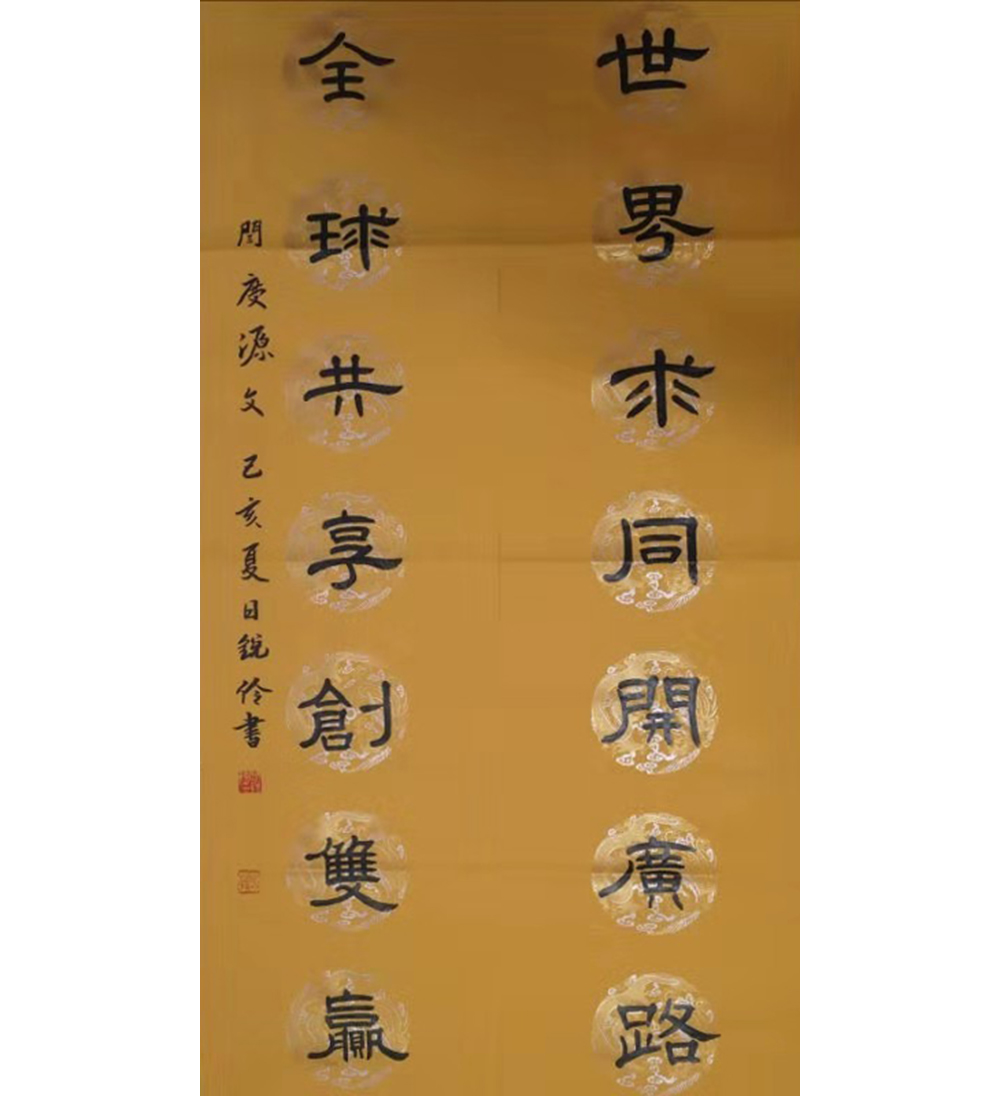 世界求同開廣路
全球共享創雙贏
閆慶源文 己亥夏日銳伶書